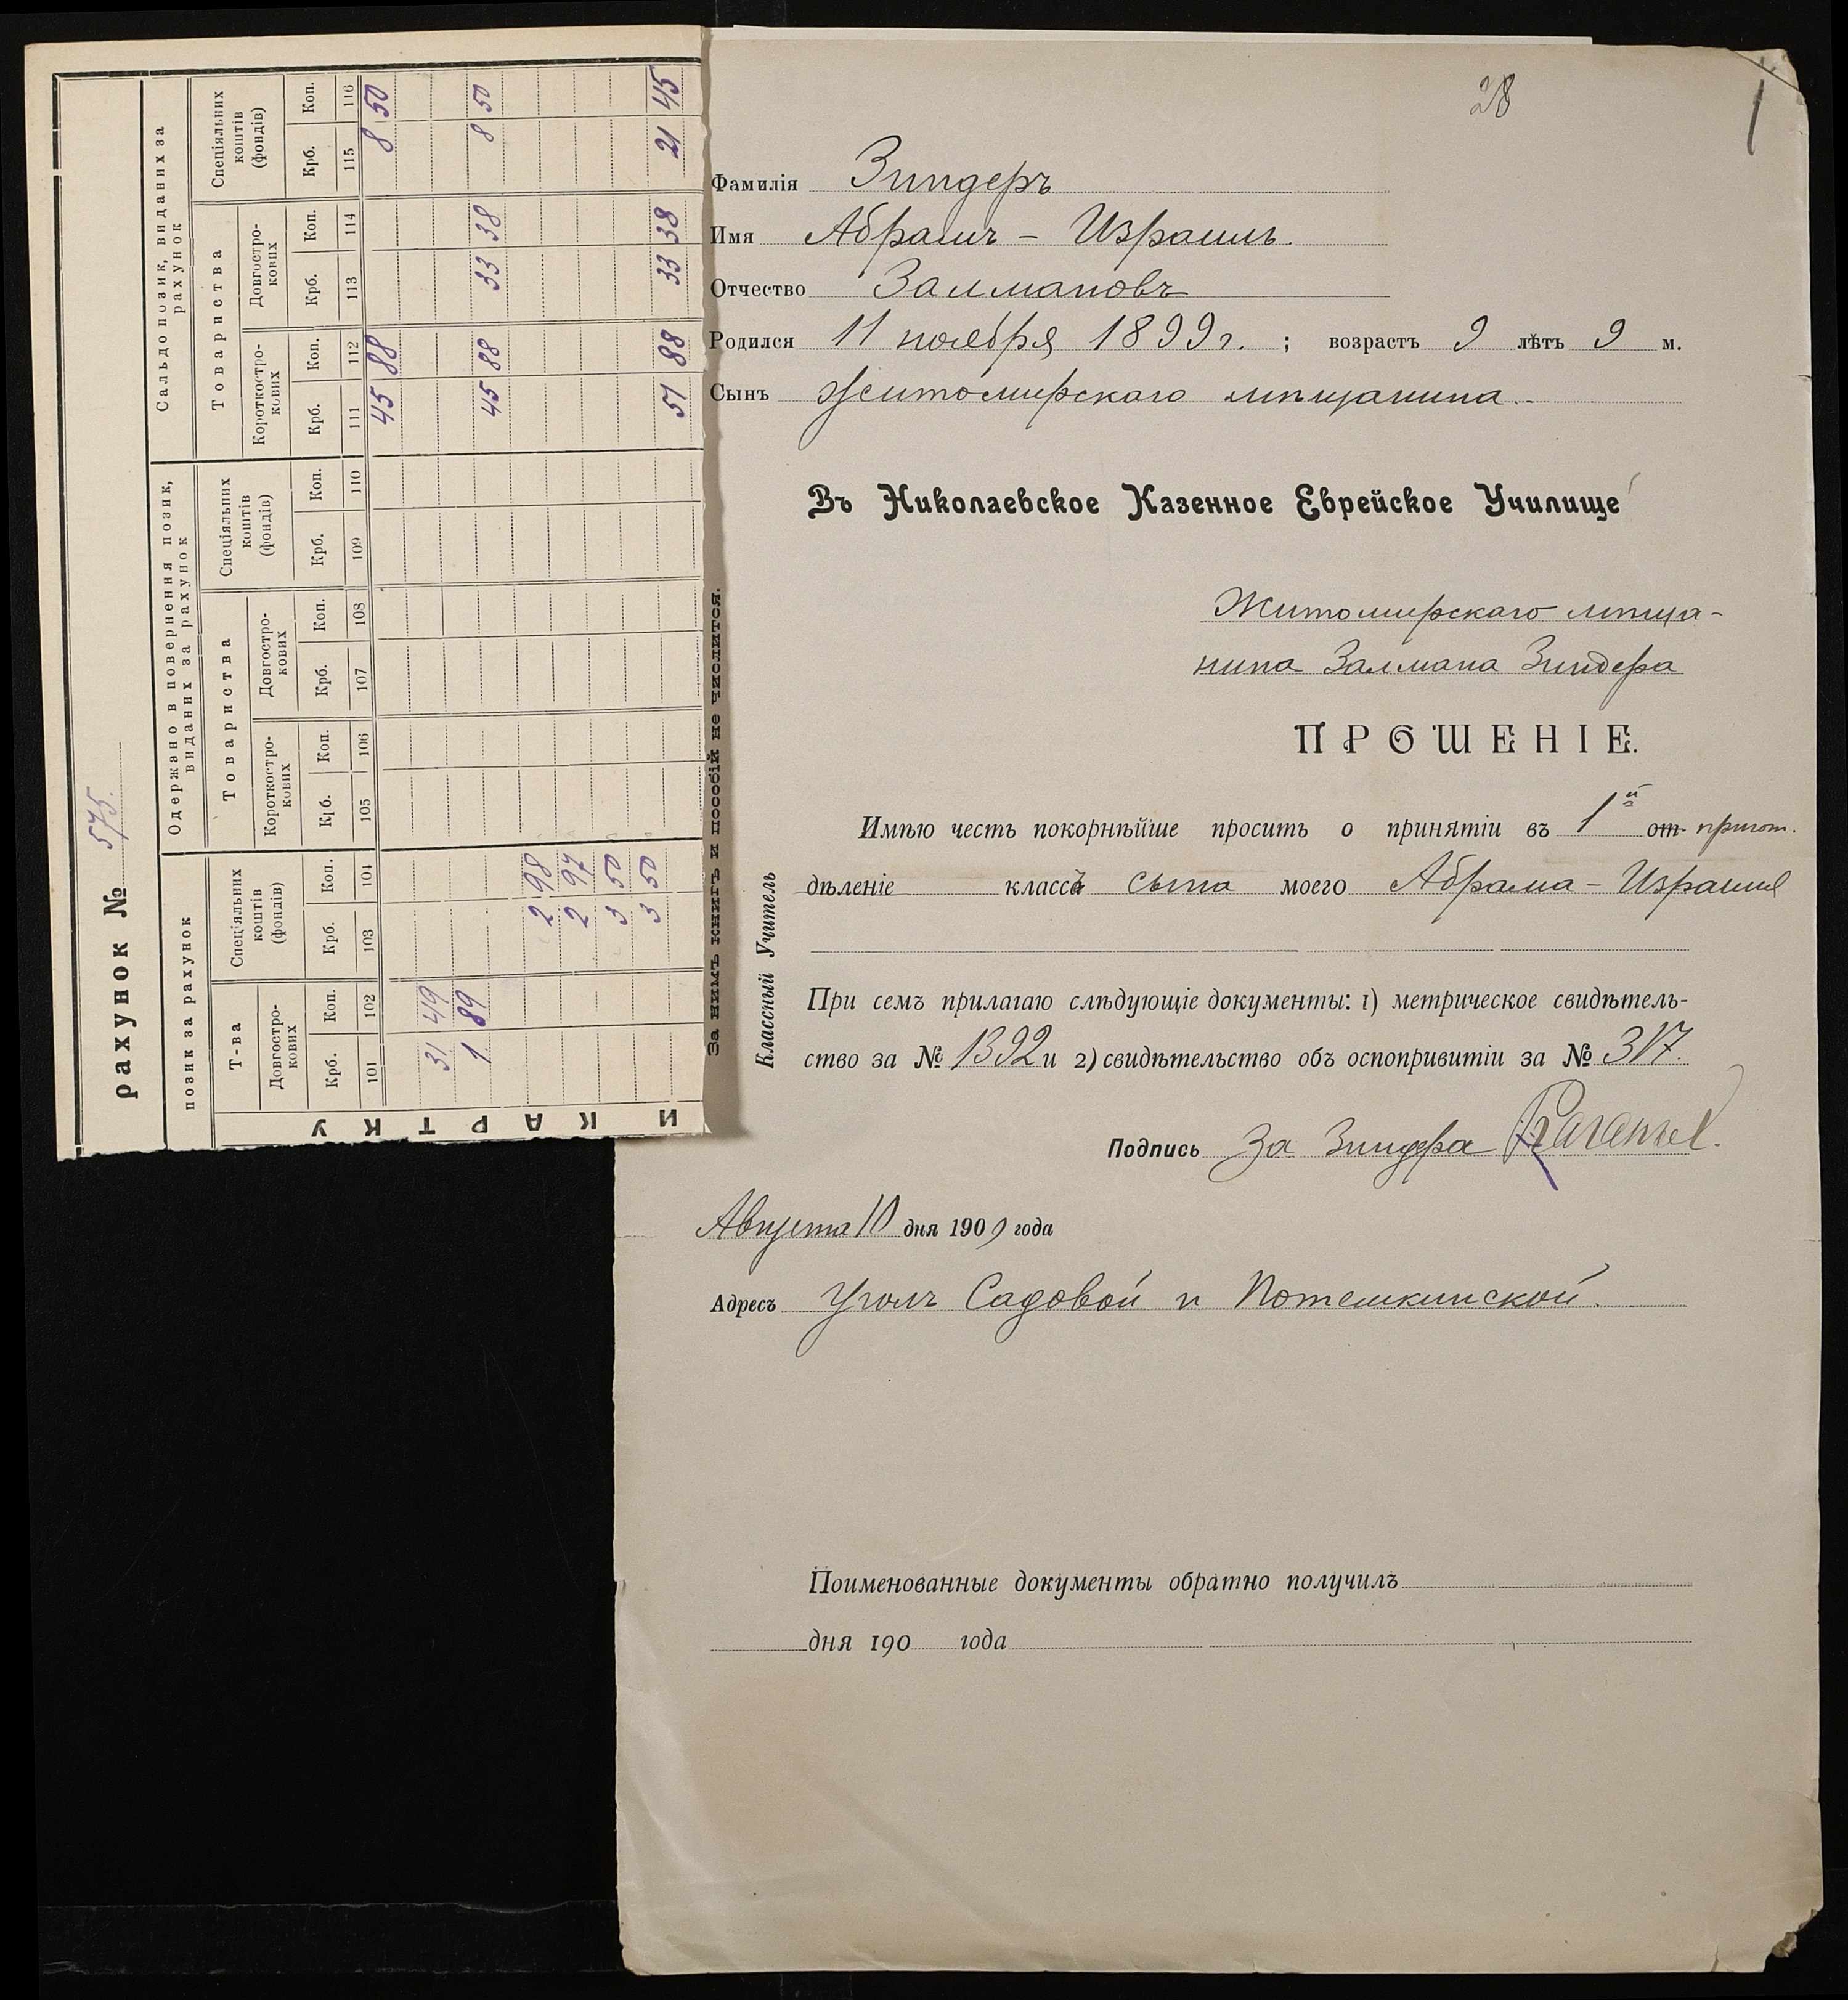 28
Фамилія Зиндеръ
Имя Абрамъ - Израиль.
Отчество Залмановъ
Родился 11 ноября 1899 г. ; возрастъ 9 лѣтъ 9 м.
Сынъ Житомирскаго мѣщанина.
Въ Николаевское Казенное Еврейское Училище
Житомирскаго мѣща-
нина Залмана Зиндера
ПРОШЕНІЕ.
Имѣю честь покорнѣйше просить о принятіи въ 1й от пригот.
дѣленіе класса сына моего Абрама - Израиля
При семъ прилагаю слѣдующіе документы: 1) метрическое свидѣтель-
ство за № 1392 и 2) свидѣтельство объ оспопривитіи за № 317.
Подпись За Зиндера
Августа 10 дня 1909 года
Адресъ Уголъ Садовой и Потемкинской.
Поименованные документы обратно получилъ
дня 190 года
За нимъ книгъ и пособій не числится.
Классный Учитель
рахунок № 575.
позик за рахунок
Одержано в повернення позик, виданих за рахунок
Сальдо позик, виданих за рахунок
Т-ва
Спеціяльних коштів (фондів)
Товариства
Спеціяльних коштів (фондів)
Товариства
Спеціяльних коштів (фондів)
Довгостро-кових
Короткостро-кових
Довгостро-кових
Короткостро-кових
Довгостро-кових
Крб. Коп. Крб. Коп. Крб. Коп. Крб. Коп. Крб. Коп. Крб. Коп. Крб. Коп. Крб. Коп.
101 102 103 104 105 106 107 108 109 110 111 112 113 114 115 116
45 88 8 50
31 49
1 89
45 88 33 38 8 50
2 98
2 97
3 50
3 50
51 88 33 38 21 45
И КАРТКУ